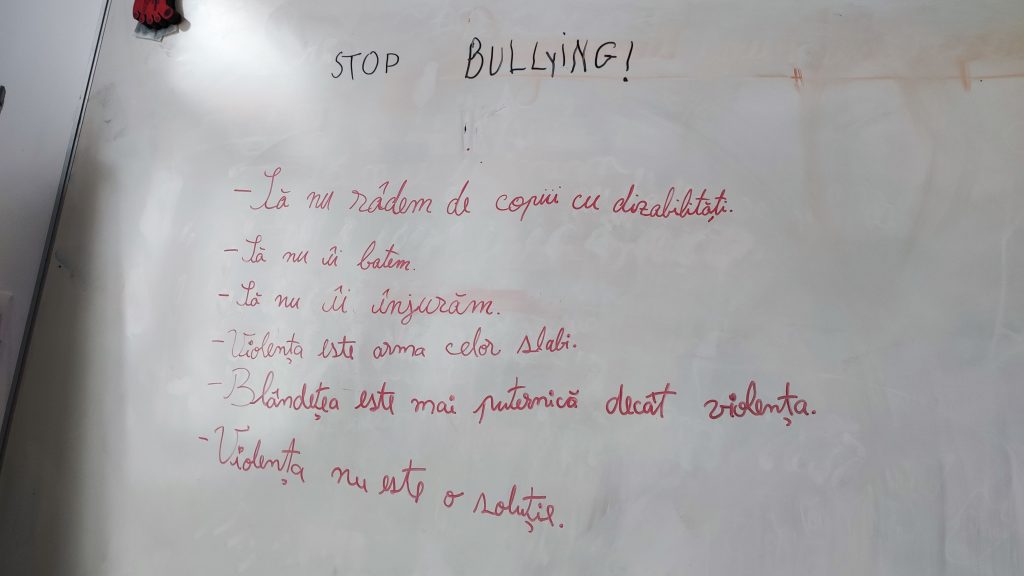 STOP BULLYING!
- Să nu râdem de copiii cu dizabilități.
- Să nu îi batem.
- Să nu îi înjurăm.
- Violența este arma celor slabi.
- Blândețea este mai puternică decât violența.
- Violența nu este o soluție.